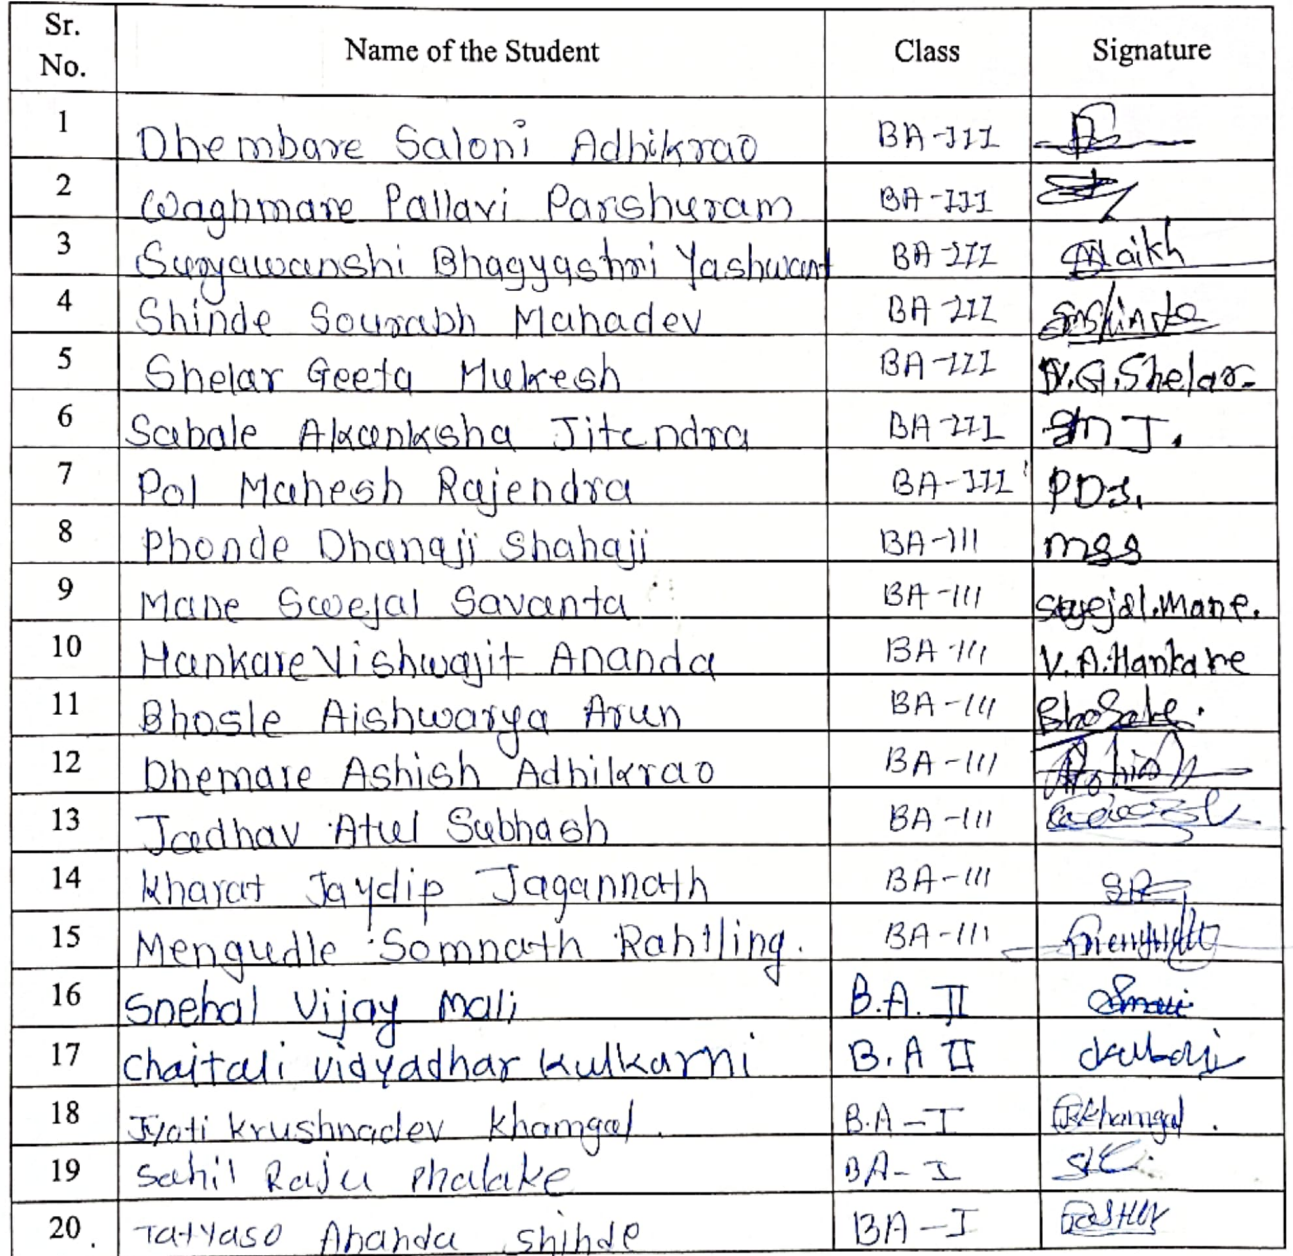 Sr. No. Name of the Student Class Signature
1 Dhembare Saloni Adhikrao BA-III
2 Waghmare Pallavi Parshuram BA-III
3 Suryawanshi Bhagyashri Yashwant BA-III
4 Shinde Sourabh Mahadev BA-III SMShinde
5 Shelar Geeta Mukesh BA-III N.G.Shelar
6 Sabale Akanksha Jitendra BA-III
7 Pol Mahesh Rajendra BA-III
8 Phonde Dhanaji Shahaji BA-III mss
9 Mane Swejal Savanta BA-III Swejal.Mane.
10 Hankare Vishwajit Ananda BA-III V.A.Hankare
11 Bhosle Aishwarya Arun BA-III Bhosale.
12 Dhemare Ashish Adhikrao BA-III
13 Jadhav Atul Subhash BA-III
14 Kharat Jaydip Jagannath BA-III
15 Mengudle Somnath BA-III
16 Snehal Vijay Mali B.A. II Smali
17 Chaitali Vidyadhar Kulkarni B.A II
18 Jyoti Krushnadev Khamgal. B.A-I JKKhamgal.
19 Sahil Raju Phalake BA-I
20 Tatyaso Ananda Shinde BA-I